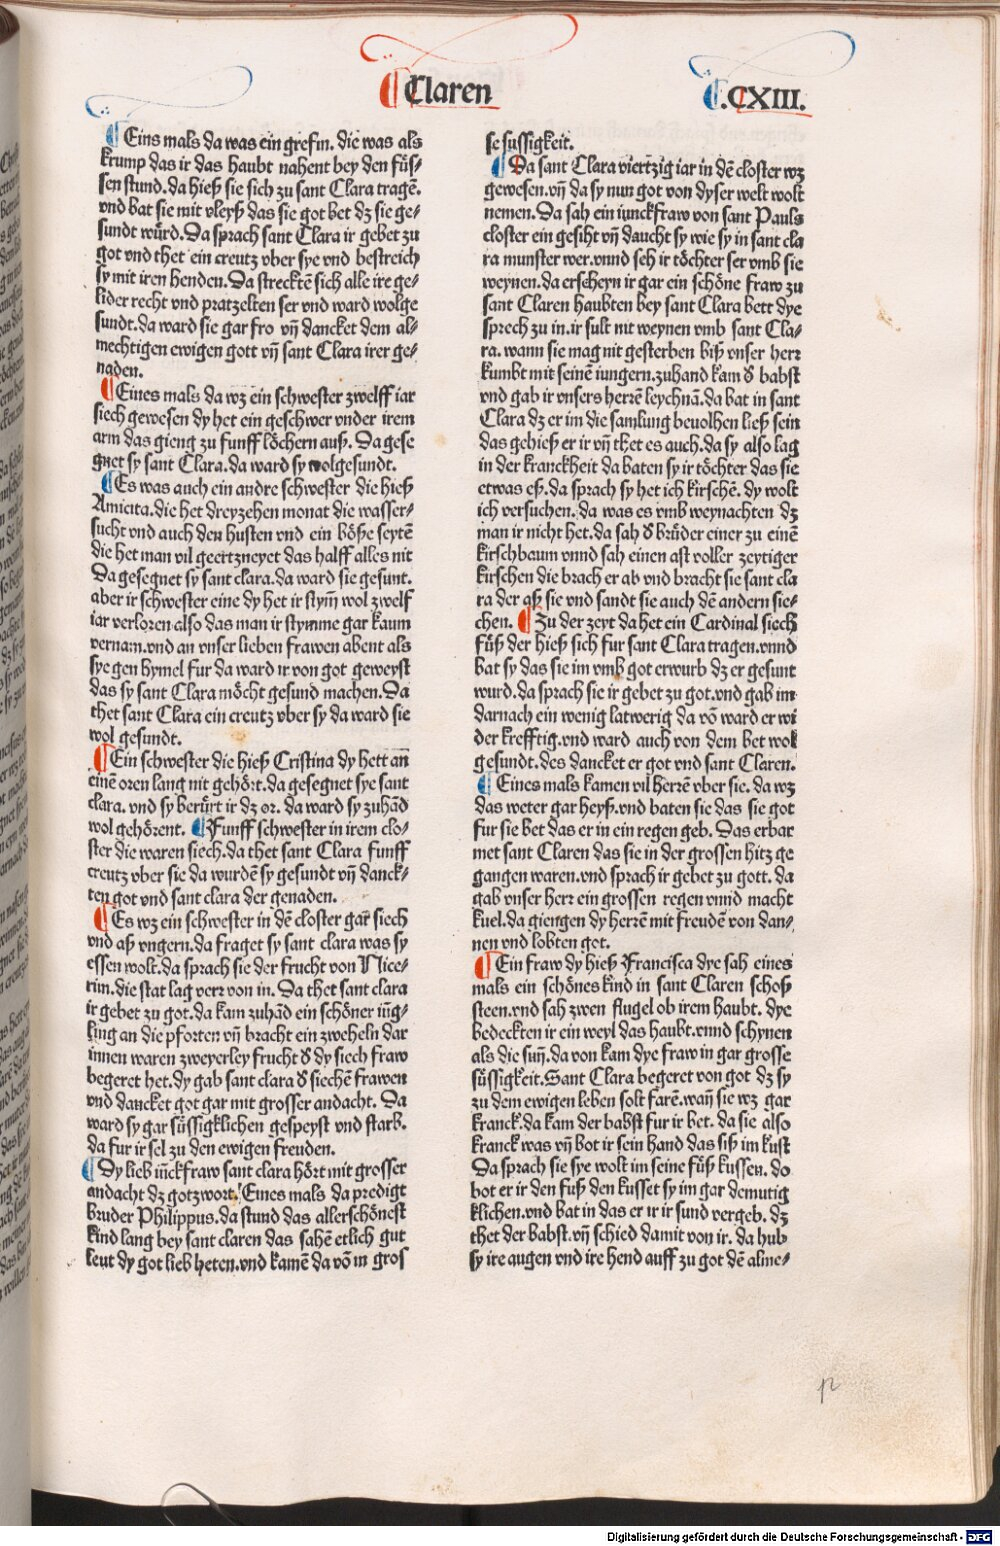 Claren
.CXIII.
Eins mals da was ein grefin. die was als
krump das ir das haubt nahent bey den füs⸗
sen stund. da hieß sie sich zu sant Clara tragē.
vnd bat sie mit vleyß das sie got bet dz sie ge⸗
sundt würd. Da sprach sant Clara ir gebet zu
got vnd thet ein creutz vber sye vnd bestreich
sy mit iren henden. Da strecktē sich alle ire ge⸗
lider recht vnd pratzelten ser vnd ward wolge
sundt. da ward sie gar fro vn̄ dancket dem al⸗
mechtigen ewigen gott vn̄ sant Clara irer ge⸗
naden.
Eines mals da wz ein schwester zwelff iar
siech gewesen dy het ein geschwer vnder irem
arm das gieng zu funff löchern auß. Da gese
gnet sy sant Clara. da ward sy wolgesundt.
Es was auch ein andre schwester die hieß
Amicita. die het dreyzehen monat die wasser⸗
sucht vnd auch den husten vnd ein böße seytē
die het man vil geertzneyet das halff alles nit
Da gesegnet sy sant clara. da ward sie gesunt.
aber ir schwester eine dy het ir stym̄ wol zwelf
iar verloren also das man ir stymme gar kaum
vernam. vnd an vnser lieben frawen abent als
sye gen hymel fur da ward ir von got geweyst
das sy sant Clara möcht gesund machen. Da
thet sant Clara ein creutz vber sy da ward sie
wol gesundt.
Ein schwester die hieß Cristina dy hett an
einē oren lang nit gehört. da gesegnet sye sant
clara. vnd sy berürt ir dz or. da ward sy zuhād
wol gehörent. Funff schwester in irem clo⸗
ster die waren siech. da thet sant Clara funff
creutz vber sie da wurdē sy gesundt vn̄ danck⸗
ten got vnd sant clara der genaden.
Es wz ein schwester in dē closter gar siech
vnd aß vngern. da fraget sy sant clara was sy
essen wolt. da sprach sie der frucht von Nice⸗
rim. die stat lag verr von in. Da thet sant clara
ir gebet zu got. da kam zuhād ein schöner iūg⸗
ling an die pforten vn̄ bracht ein zweheln dar
innen waren zweyerley frucht d̕ dy siech fraw
begeret het. dy gab sant clara d̕ siechē frawen
vnd dancket got gar mit grosser andacht. Da
ward sy gar süssigklichen gespeyst vnd starb.
da fur ir sel zu den ewigen freuden.
Dy lieb iūckfraw sant clara hört mit grosser
andacht dz gotzwort. Eines mals da predigt
bruder Philippus. da stund das allerschönest
kind lang bey sant claren das sahē etlich gut
leut dy got lieb heten. vnd kamē da vō in gros
se sussigkeit.
Da sant Clara viertzig iar in dē closter wz
gewesen. vn̄ da sy nun got von dyser welt wolt
nemen. Da sah ein iunckfraw von sant Pauls
closter ein gesiht vn̄ daucht sy wie sy in sant cla
ra munster wer. vnnd seh ir töchter ser vmb sie
weynen. da erscheyn ir gar ein schöne fraw zu
sant Claren haubten bey sant Clara bett dye
sprech zu in. ir sult nit weynen vmb sant Cla⸗
ra. wann sie mag nit gesterben biß vnser herr
kumbt mit seinē iungern. zuhand kam d̕ babst
vnd gab ir vnsers herrē leychnā. da bat in sant
Clara dz er im die samlung beuolhen ließ sein
das gehieß er ir vn̄ thet es auch. da sy also lag
in der kranckheit da baten sy ir töchter das sie
etwas eß. da sprach sy het ich kirschē. dy wolt
ich versuchen. da was es vmb weynachten dz
man ir nicht het. da sah d̕ brüder einer zu einē
kirschbaum vnnd sah einen ast voller zeytiger
kirschen die brach er ab vnd bracht sie sant cla
ra der aß sie vnd sandt sie auch dē andern sie⸗
chen. Zu der zeyt da het ein Cardinal siech
füß der hieß sich fur sant Clara tragen. vnnd
bat sy das sie im vmb got erwurb dz er gesunt
wurd. da sprach sie ir gebet zu got. vnd gab im
darnach ein wenig latwerig da vō ward er wi
der krefftig. vnd ward auch von dem bet wol
gesundt. des dancket er got vnd sant Claren.
Eines mals kamen vil herrē vber sie. da wz
das weter gar heyß. vnd baten sie das sie got
fur sie bet das er in ein regen geb. Das erbar
met sant Claren das sie in der grossen hitz ge
gangen waren. vnd sprach ir gebet zu gott. da
gab vnser herr ein grossen regen vnnd macht
kuel. da giengen dy herrē mit freudē von dan⸗
nen vnd lobten got.
Ein fraw dy hieß Francisca dye sah eines
mals ein schönes kind in sant Claren schoß
steen. vnd sah zwen flugel ob irem haubt. dye
bedeckten ir ein weyl das haubt. vnnd schynen
als die sun̄. da von kam dye fraw in gar grosse
süssigkeit. Sant Clara begeret von got dz sy
zu dem ewigen leben solt farē. wan̄ sie wz gar
kranck. da kam der babst fur ir bet. da sie also
kranck was vn̄ bot ir sein hand das siß im kust
Da sprach sie sye wolt im seine füß kussen. do
bot er ir den fuß den kusset sy im gar demutig
klichen. vnd bat in das er ir ir sund vergeb. dz
thet der babst. vn̄ schied damit von ir. da hub
sy ire augen vnd ire hend auff zu got dē alme⸗
Digitalisierung gefördert durch die Deutsche Forschungsgemeinschaft - DFG